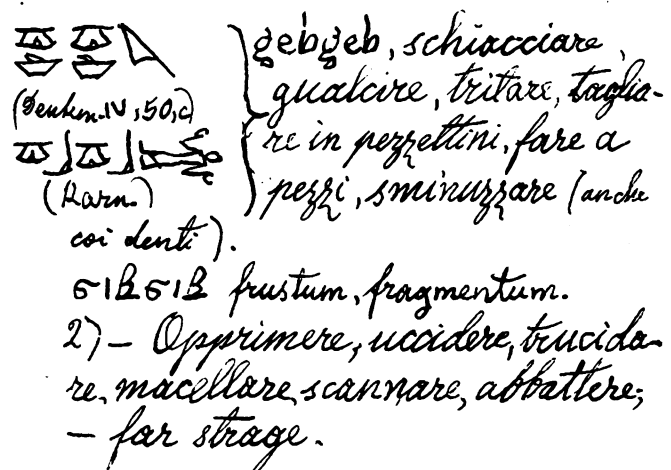 gebgeb, schiacciare,
(Denkm. IV, 50, c) gualcire, tritare, taglia-
re in pezzettini, fare a
(Karn.) pezzi, sminuzzare (anche
coi denti).
ϭⲓⲃϭⲓⲃ frustum, fragmentum.
2) – Opprimere, uccidere, trucida-
re, macellare, scannare, abbattere;
– far strage.